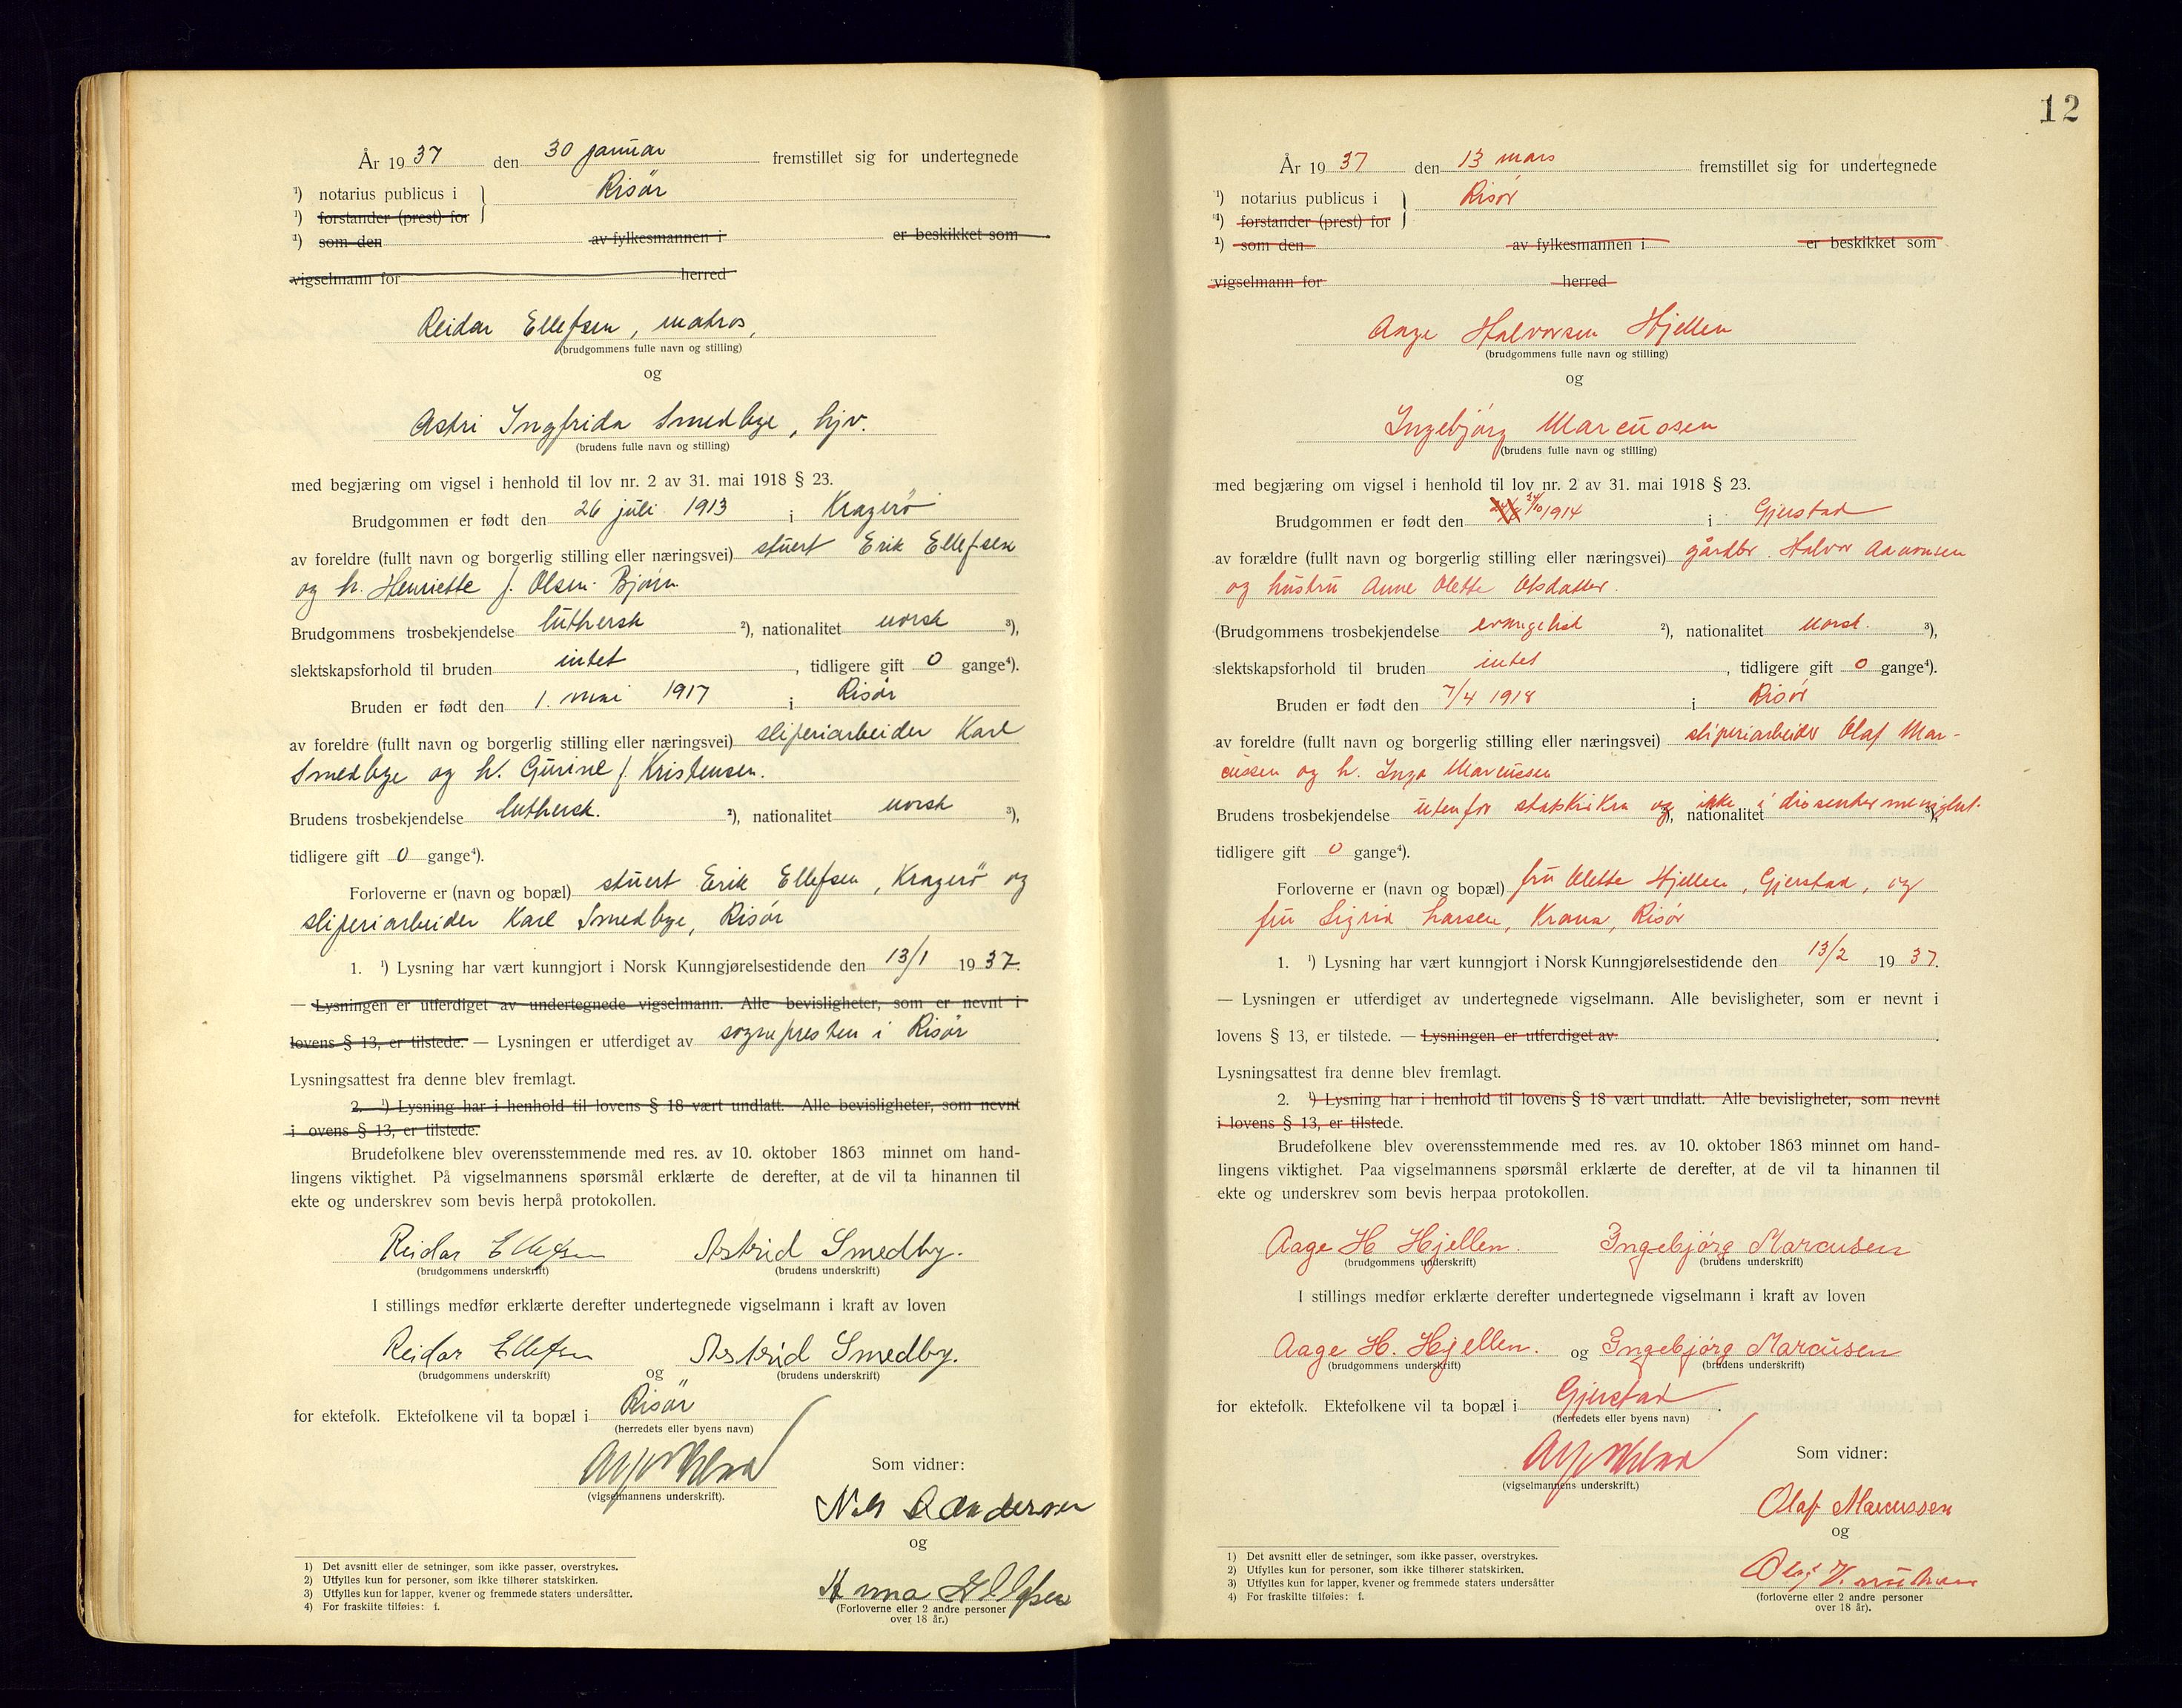 År 19 37 den 30 januar fremstillet sig for undertegnede
¹) notarius publicus i } Risör
¹) forstander (prest) for
¹) som den av fylkesmannen i er beskikket som
vigselmann for herred
Reidar Ellefsen, matros,
(brudgommens fulle navn og stilling)
og
Astri Ingfrida Smedbye, hjv.
(brudens fulle navn og stilling)
med begjæring om vigsel i henhold til lov nr. 2 av 31. mai 1918 § 23.
Brudgommen er født den 26 juli 1913 i Kragerö
av foreldre (fullt navn og borgerlig stilling eller næringsvei) stuert Erik Ellefsen
og h. Henriette f. Olsen-Bjørn
Brudgommens trosbekjendelse luthersk ²), nationalitet norsk ³),
slektskapsforhold til bruden intet, tidligere gift 0 gange⁴).
Bruden er født den 1. mai 1917 i Risör
av foreldre (fullt navn og borgerlig stilling eller næringsvei) sliperiarbeider Karl
Smedbye og h. Gurine f. Kristensen.
Brudens trosbekjendelse luthersk. ²), nationalitet norsk ³),
tidligere gift 0 gange⁴).
Forloverne er (navn og bopæl) stuert Erik Ellefsen, Kragerö og
sliperiarbeider Karl Smedbye, Risör
1. ¹) Lysning har vært kunngjort i Norsk Kunngjørelsestidende den 13/1 19 37.
— Lysningen er utferdiget av undertegnede vigselmann. Alle bevisligheter, som er nevnt i
lovens § 13, er tilstede. — Lysningen er utferdiget av sognepresten i Risör
Lysningsattest fra denne blev fremlagt.
2. ¹) Lysning har i henhold til lovens § 18 vært undlatt. Alle bevisligheter, som nevnt
i ovens § 13, er tilstede.
Brudefolkene blev overensstemmende med res. av 10. oktober 1863 minnet om hand-
lingens viktighet. På vigselmannens spørsmål erklærte de derefter, at de vil ta hinannen til
ekte og underskrev som bevis herpå protokollen.
Reidar Ellefsen Astrid Smedby.
(brudgommens underskrift) (brudens underskrift)
I stillings medfør erklærte derefter undertegnede vigselmann i kraft av loven
Reidar Ellefsen og Astrid Smedby.
(brudgommens underskrift) (brudens underskrift)
for ektefolk. Ektefolkene vil ta bopæl i Risör
(herredets eller byens navn)
(vigselmannens underskrift).
Som vidner:
Nils Andersen
og
Anna Ellefsen
(Forloverne eller 2 andre personer
over 18 år.)
1) Det avsnitt eller de setninger, som ikke passer, overstrykes.
2) Utfylles kun for personer, som ikke tilhører statskirken.
3) Utfylles kun for lapper, kvener og fremmede staters undersåtter.
4) For fraskilte tilføies: f.
12
År 19 37 den 13 mars fremstillet sig for undertegnede
¹) notarius publicus i } Risör
¹) forstander (prest) for
¹) som den av fylkesmannen i er beskikket som
vigselmann for herred
Aage Halvorsen Hjellen
(brudgommens fulle navn og stilling)
og
Ingebjörg Marcussen
(brudens fulle navn og stilling)
med begjæring om vigsel i henhold til lov nr. 2 av 31. mai 1918 § 23.
Brudgommen er født den 24/10 1914 i Gjerstad
av forældre (fullt navn og borgerlig stilling eller næringsvei) gårdbr. Halvor Aavonsen
og hustru Anne Olette Olsdatter.
(Brudgommens trosbekjendelse evangelisk ²), nationalitet norsk. ³),
slektskapsforhold til bruden intet, tidligere gift 0 gange⁴).
Bruden er født den 7/4 1918 i Risör
av foreldre (fullt navn og borgerlig stilling eller næringsvei) sliperiarbeider Olaf Mar-
cussen og h. Inga Marcussen
Brudens trosbekjendelse utenfor statskirken og ²), ikke i nationalitet dissentermenighet. ³),
tidligere gift 0 gange⁴).
Forloverne er (navn og bopæl) fru Olette Hjellen, Gjerstad, og
fru Sigrid Larsen, Krana, Risör
1. ¹) Lysning har vært kunngjort i Norsk Kunngjørelsestidende den 13/2 19 37.
— Lysningen er utferdiget av undertegnede vigselmann. Alle bevisligheter, som er nevnt i
lovens § 13, er tilstede. — Lysningen er utferdiget av
Lysningsattest fra denne blev fremlagt.
2. ¹) Lysning har i henhold til lovens § 18 vært undlatt. Alle bevisligheter, som nevnt
i lovens § 13, er tilstede.
Brudefolkene blev overensstemmende med res. av 10. oktober 1863 minnet om hand-
lingens viktighet. Paa vigselmannens spørsmål erklærte de derefter, at de vil ta hinannen til
ekte og underskrev som bevis herpaa protokollen.
Aage H Hjellen. Ingebjørg Marcusen
(brudgommens underskrift) (brudens underskrift)
I stillings medfør erklærte derefter undertegnede vigselmann i kraft av loven
Aage H. Hjellen. og Ingebjørg Marcusen
(brudgommens underskrift) (brudens underskrift)
for ektefolk. Ektefolkene vil ta bopæl i Gjerstad.
(herredets eller byens navn)
(vigselmannens underskrift.)
Som vidner:
Olaf Marcussen
og
Olaf
(forloverne eller 2 andre personer
over 18 år).
1) Det avsnitt eller de setninger, som ikke passer, overstrykes.
2) Utfylles kun for personer, som ikke tilhører statskirken.
3) Utfylles kun for lapper, kvener og fremmede staters undersåtter
4) For fraskilte tilføies: f.